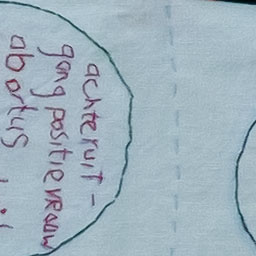 achteruit-
gang positie vrouw
abortus